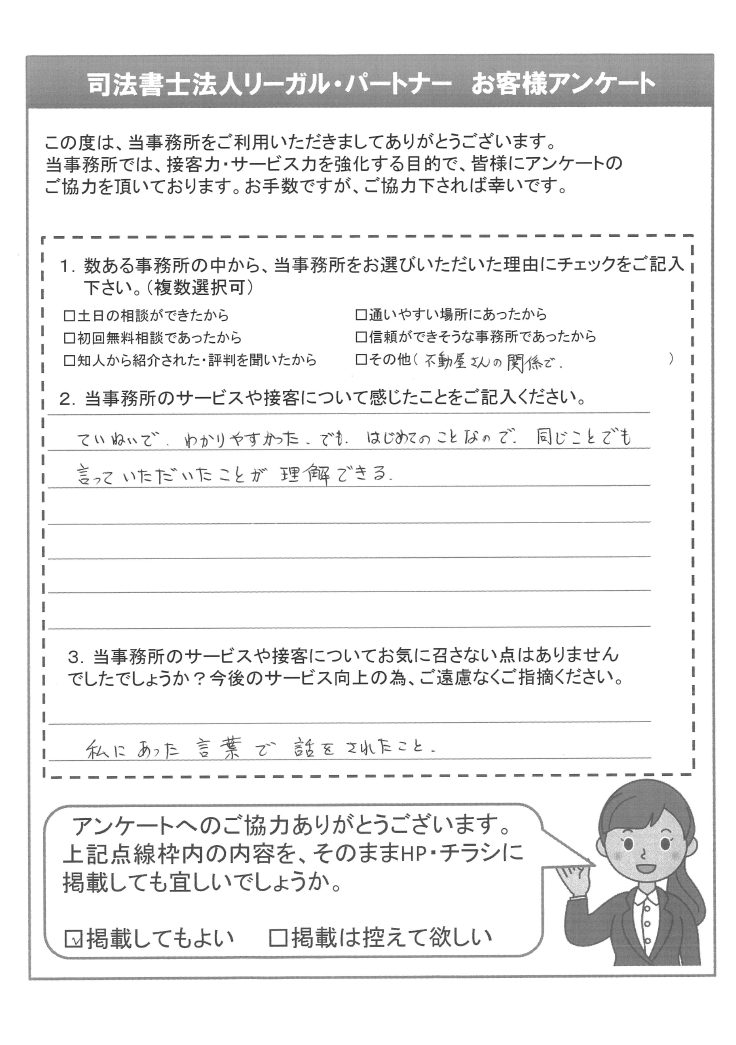 司法書士法人リーガル・パートナー　お客様アンケート
この度は、当事務所をご利用いただきましてありがとうございます。
当事務所では、接客力・サービス力を強化する目的で、皆様にアンケートの
ご協力を頂いております。お手数ですが、ご協力下されば幸いです。
1．数ある事務所の中から、当事務所をお選びいただいた理由にチェックをご記入
下さい。（複数選択可）
□土日の相談ができたから　□通いやすい場所にあったから
□初回無料相談であったから　□信頼ができそうな事務所であったから
□知人から紹介された・評判を聞いたから　□その他（不動屋さんの関係で.）
2．当事務所のサービスや接客について感じたことをご記入ください。
ていねいで．わかりやすかった．でも．はじめてのことなので．同じことでも
言っていただいたことが理解できる．
3．当事務所のサービスや接客についてお気に召さない点はありません
でしたでしょうか？今後のサービス向上の為、ご遠慮なくご指摘ください。
私にあった言葉で話をされたこと．
アンケートへのご協力ありがとうございます。
上記点線枠内の内容を、そのままHP・チラシに
掲載しても宜しいでしょうか。
☑掲載してもよい　□掲載は控えて欲しい